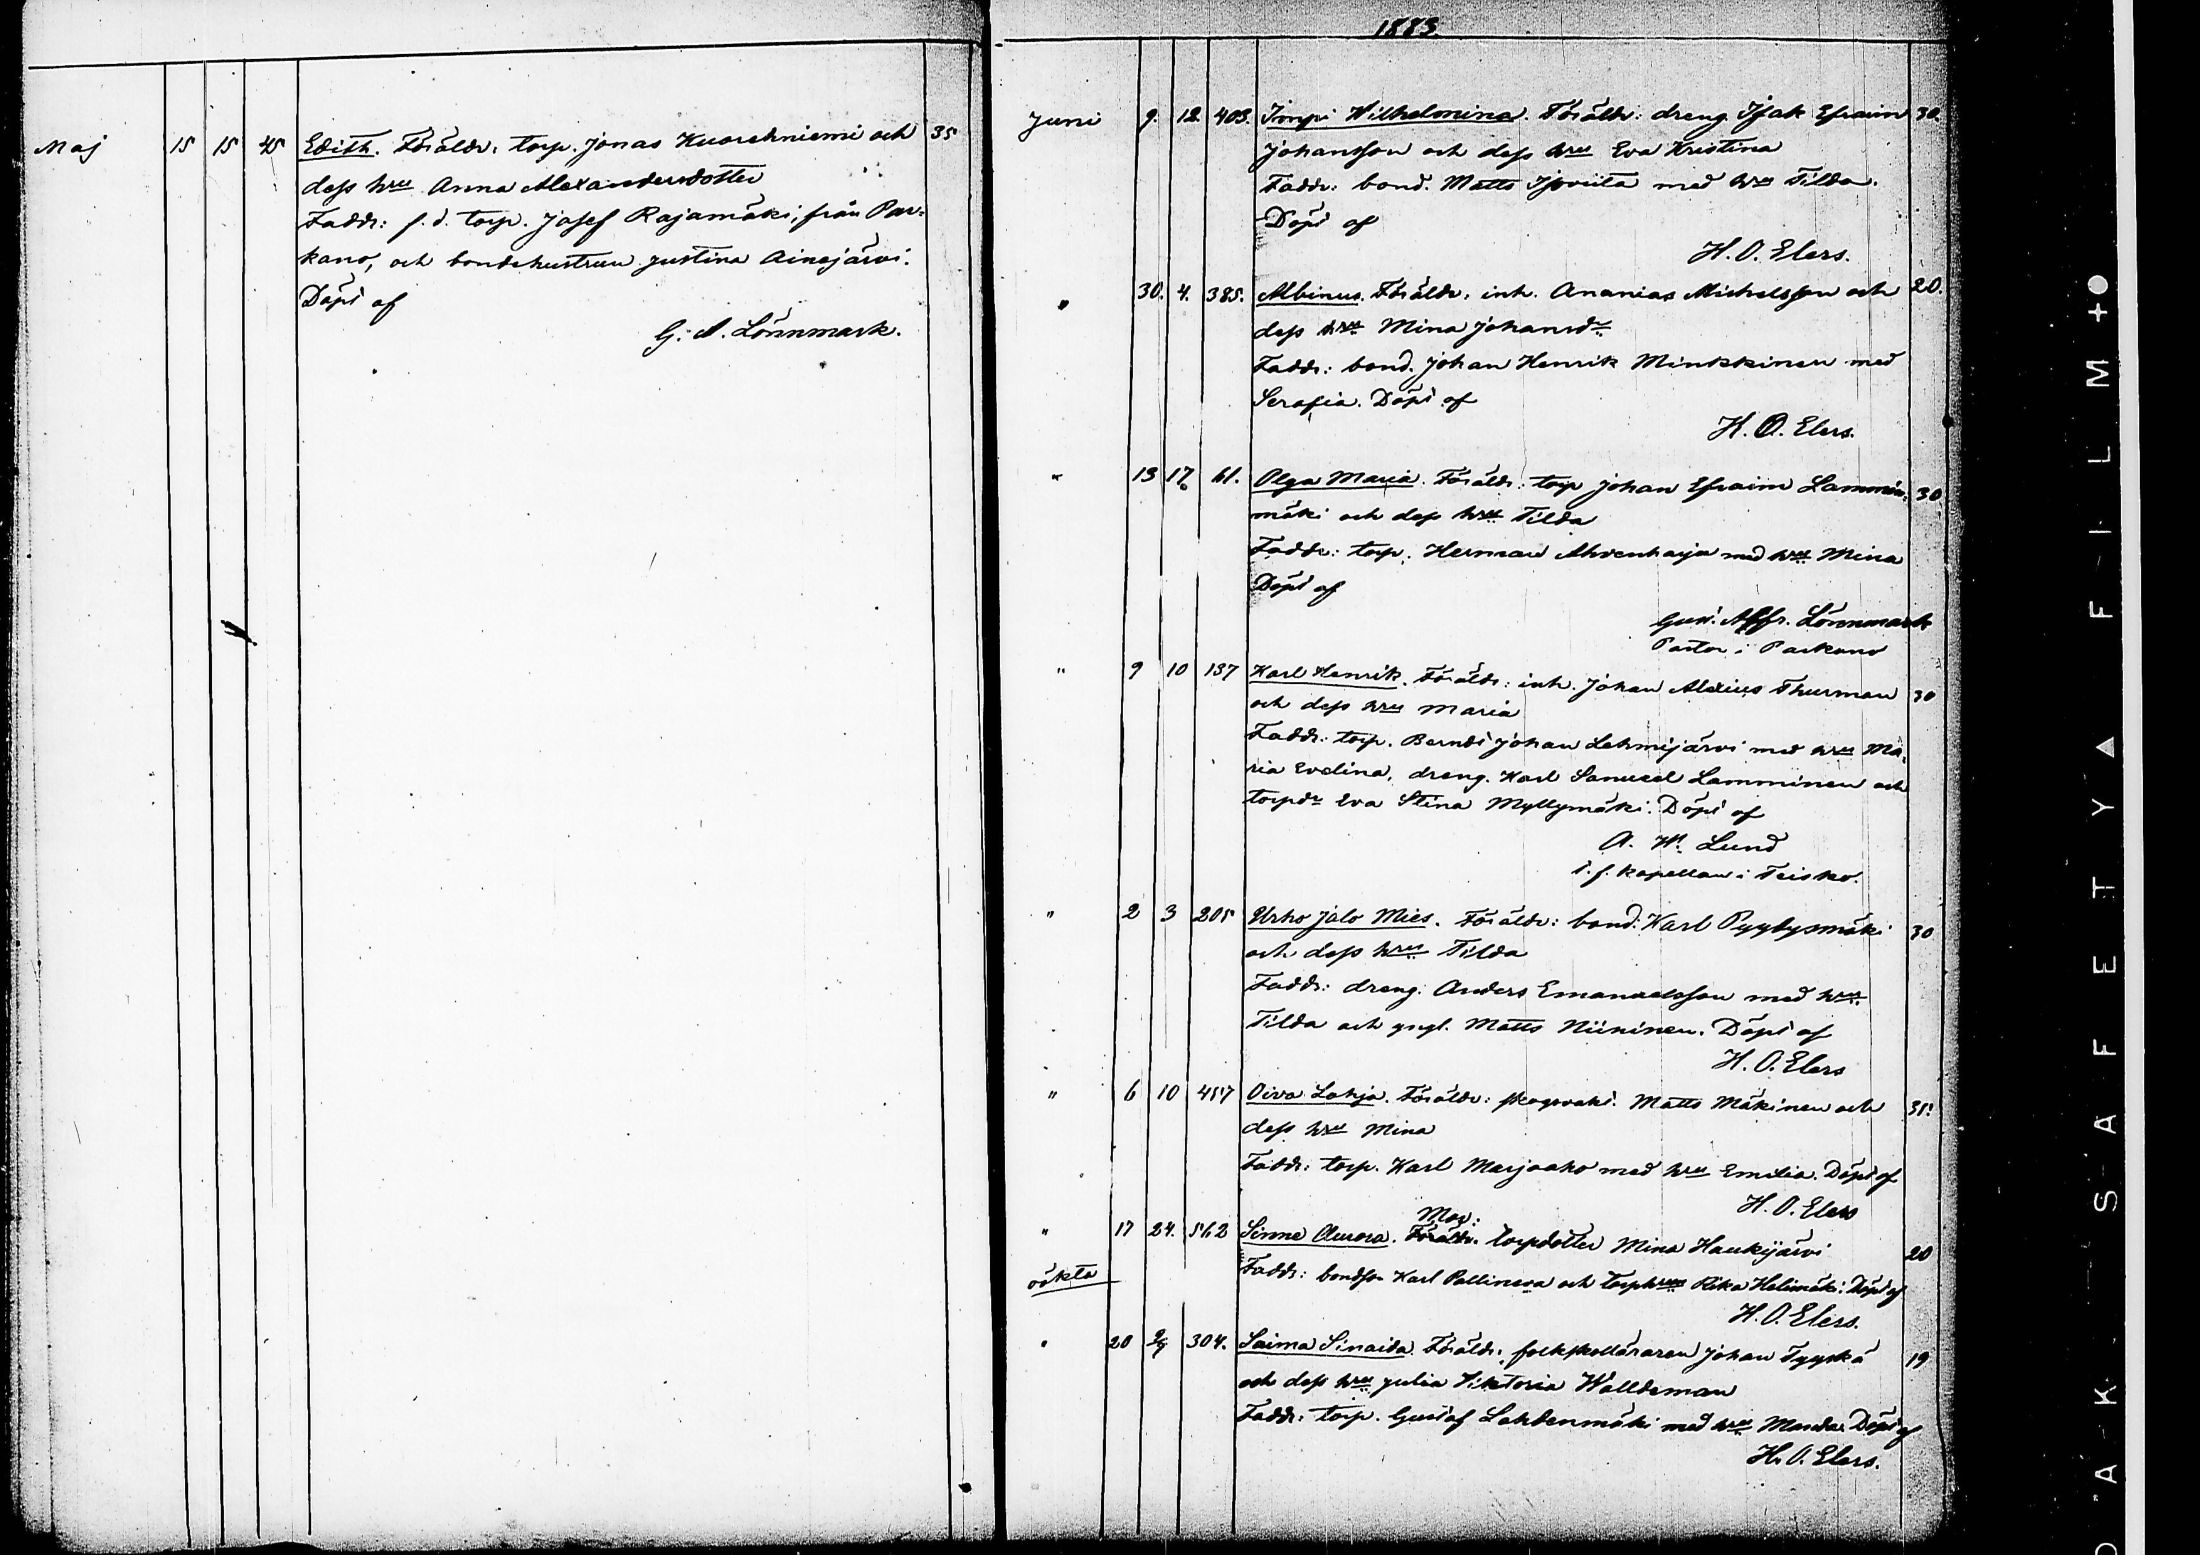 Maj 15 15 45 Edith. Föräldr: torp. Jonas Kuorehniemi och 35
dess hru Anna Alexandersdotter
Faddr: f. d. torp. Josef Rajamäki, från Par-
kano, och bondehustrun Justina Ainejärvi.
Döpt af
G. A. Lönnmark.
1883
Juni 9. 12. 403. Impi Wilhelmina. Föräldr: dreng. Isak Efraim 30.
Johansson och dess hru Eva Kristina
Faddr: bond. Matts med hru Tilda.
Döpt af
H. O. Elers.
" 30. 4. 385. Albinus. Föräldr. inh. Ananias Michelsson och 20.
dess hru Mina Johansdr
Faddr: bond. Johan Henrik Minkkinen med
Serafia. Döpt af
H. O. Elers.
" 13 17. 61. Olga Maria. Föräldr: torp Johan Efraim Lammin- 30
mäki och dess hru Tilda
Faddr: torp. Herman Ahvenharja med hru Mina
Döpt af
Gust. Alfr. Lönnmark
Pastor i Parkano
" 9 10 137 Karl Henrik. Föräldr: inh. Johan Alexius Thurman 30
och dess hru Maria
Faddr: torp. Berndt Johan Lehmijärvi med hru Ma-
ria Evelina, dreng. Karl Samuel Lamminen och
torpdr Eva Stina Myllymäki. Döpt af
A. W. Lund
t. f. kapellan i Teisko.
" 2 3 205 Urho Jalo Mies. Föräldr: bond. Karl Pyylysmäki 30
och dess hru Tilda
Faddr: dreng. Anders Emanuelsson med hru
Tilda och yngl. Matts Niininen. Döpt af
H. O. Elers
" 6 10 457 Oiva Lahja. Föräldr: skogvakt. Matts Mäkinen och 31.
dess hru Mina
Faddr: torp. Karl Marjaaho med hru Emilia. Döpt af
H. O. Elers
Mor:
" 17 24. 562 Sinne Aurora. Föräldr. torpdotter Mina Haukijärvi 20
oäkta Faddr: bondson Karl Pollinen och torphru Rika Helimäki. Döpt af
H. O. Elers.
" 20 304. Saima Sinaida. Föräldr. folkskolläraren Johan Tyyskä 19
och dess hru Julia Viktoria Walldeman
Faddr: torp. Gustaf Lehdenmäki med hru Manda. Döpt af
H. O. Elers.
DAK SAFETY A FILM